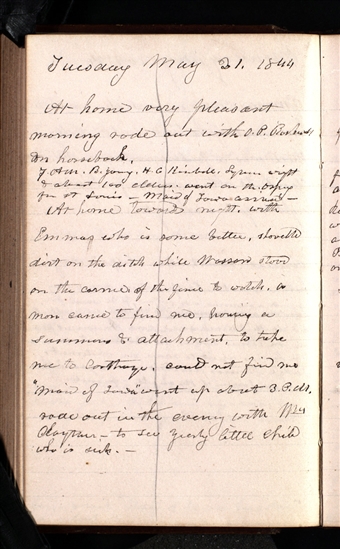 Tuesday May 21. 1844
At home very pleasant
morning rode out with O. P. Rockwell
on horseback.
7 A.M. B. Young. H. C. Kimball. Lyman Wight
& about 100 elders. went on the Osprey
for St Louis — Maid of Iowa arrived —
At home towards night. with
Emma who is some better, shovelld
dirt on the ditch while Wasson stood
on the corner of the fence to watch. a
man came to find me, having a
summons & attachment, to take
me to Carthage. could not find me
"Maid of Iowa" went up about 3. P.M.
rode out in the evening with Mr
— to see little child
who is sick. —